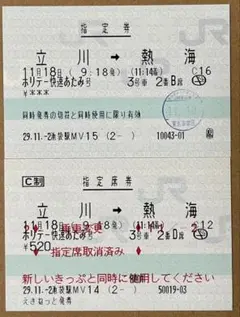 指定券
立川 → 熱海
11月18日 (9:18発) (11:14着) C16
ホリデー快速あたみ号 3号車 2番B席
¥***
同時発券の切符と同時使用に限り有効
29.11.-2池袋駅MV15 (2-) 10043-01
C制 指定席券
立川 → 熱海
11月18日 (9:18発)
ホリデー快速あたみ号 3号車 2番D席
¥520
乗車変更
指定席取消済み
新しいきっぷと同時に使用してください
29.11.-2池袋駅MV14 (2-) 50019-03
えきねっと発券